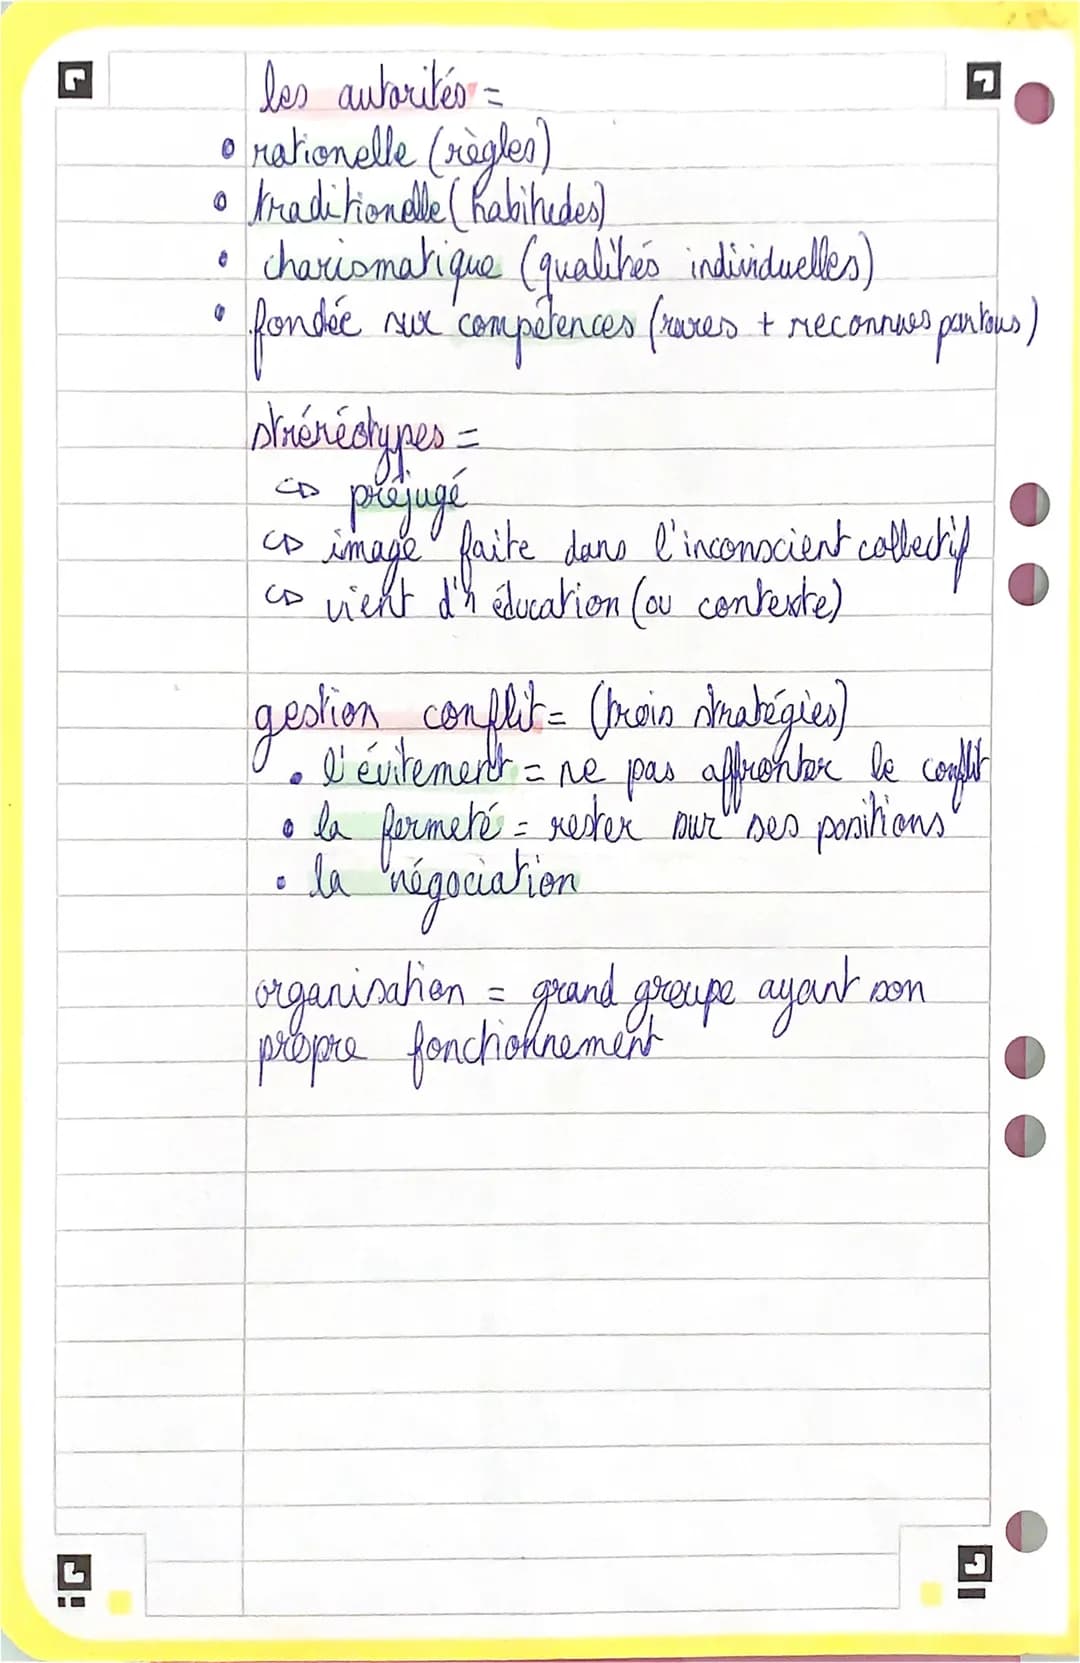 les autorités =
• rationelle (règles)
• traditionelle (habitudes)
• charismatique (qualités individuelles)
• fondée sur compétences (rares + reconnues par tous)
stréréotypes =
↳ préjugé
↳ image faite dans l'inconscient collectif
↳ vient d'η éducation (ou contexte)
gestion conflit = (trois stratégies)
• l'évitement = ne pas affronter le conflit
• la fermeté = rester sur ses positions
• la négociation
organisation = grand groupe ayant son
propre fonctionnement